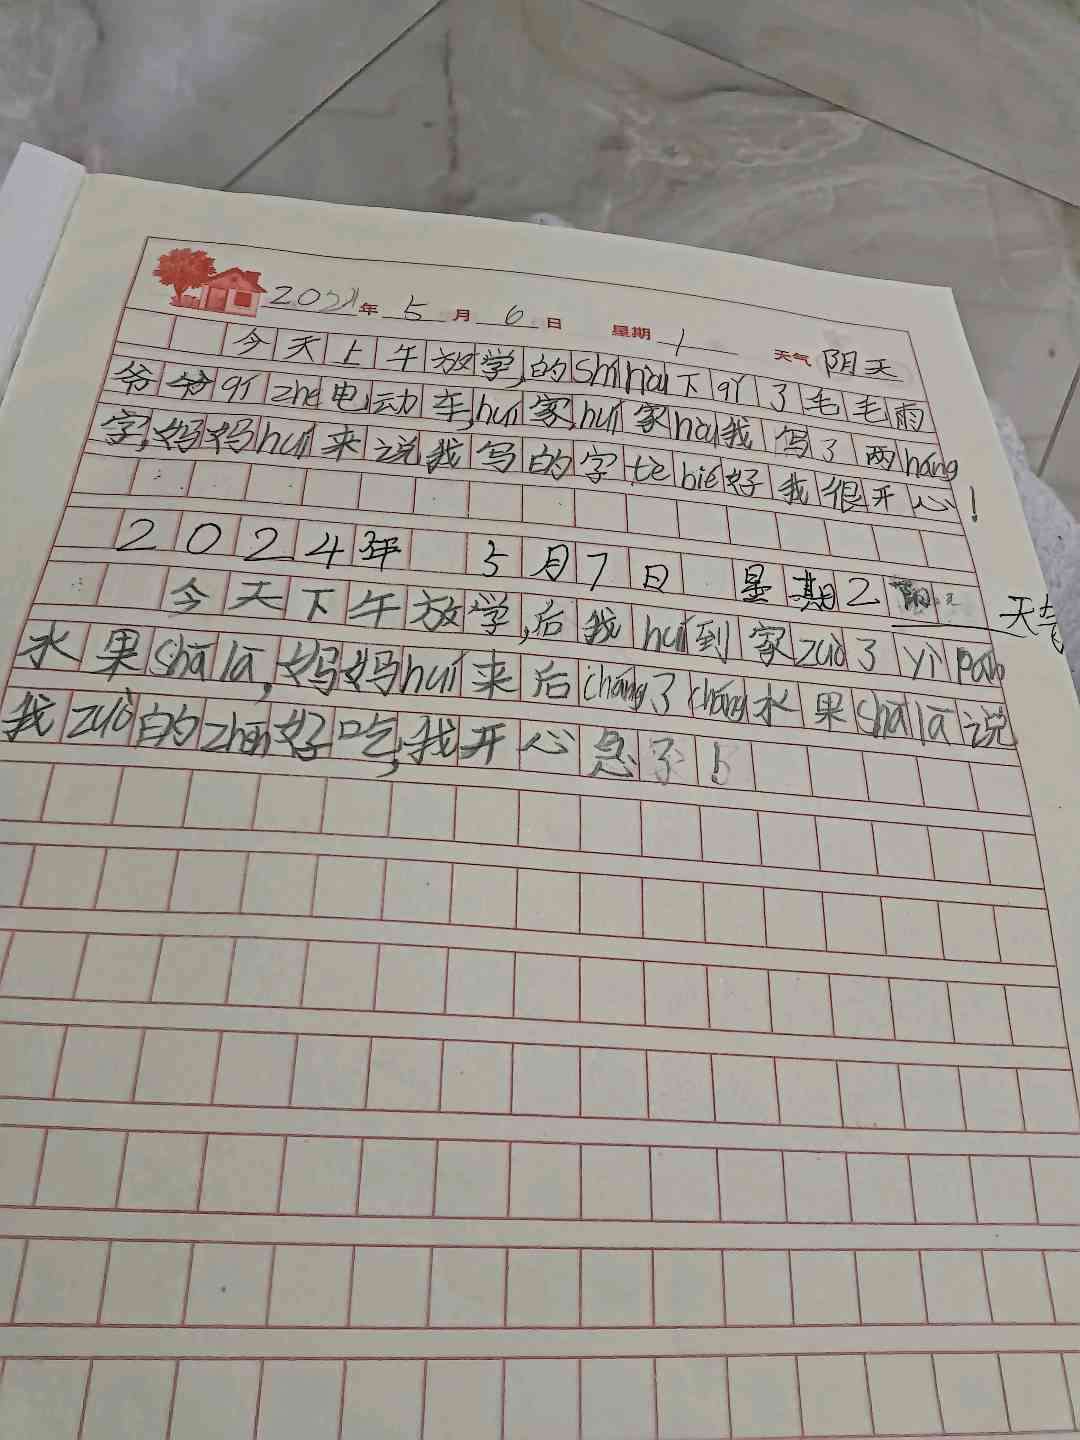 2024年 5 月 6 日 星期 1 天气 阴天
今天上午放学,的shíhòu下qǐ了毛毛雨
爷爷qí zhe电动车,huí家,huí家hòu我写了两háng
字,妈妈huí来说我写的字tè bié好我很开心!
2024年 5月7日 星期2 天气
今天下午放学,后我huí到家zuò了yì pán
水果shā lā,妈妈huí来后cháng了cháng水果shā lā说
我zuò的zhēn好吃,我开心急了!